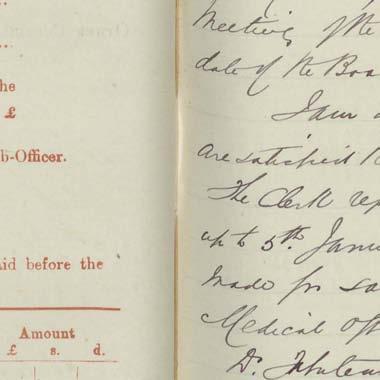 he
£
b-Officer.
id before the
Amount
£ s. d.
Meeting of the
date of the Boa
I am
are satisfied
The Clerk rep
up to 5th Janu
made for sa
Medical Off
Dr.